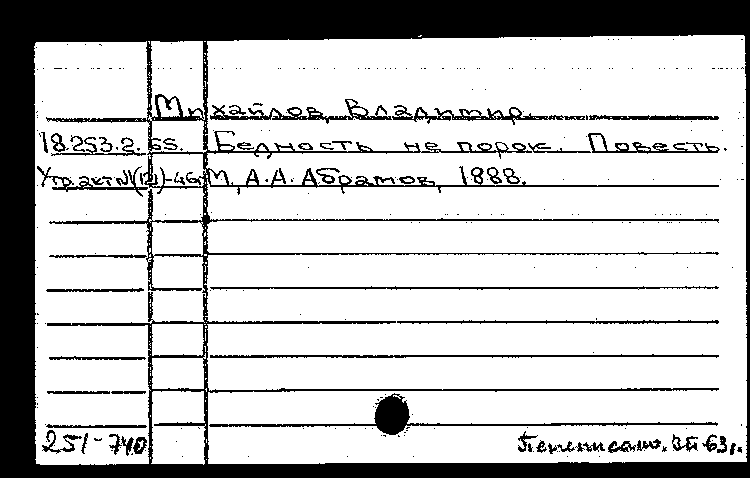 Михайлов, Владимир.
18.253.2.65. Бедность не порок. Повесть.
Утр. акт №1(121)-46г. М., А.А. Абрамов, 1888.
251-740 63г.